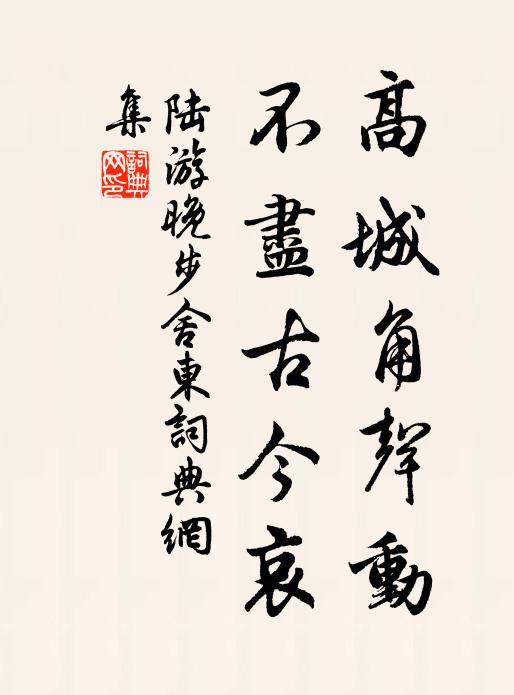 高城角聲動
不盡古今哀
陆游晚步舍東詞典網
集
詞典
网印